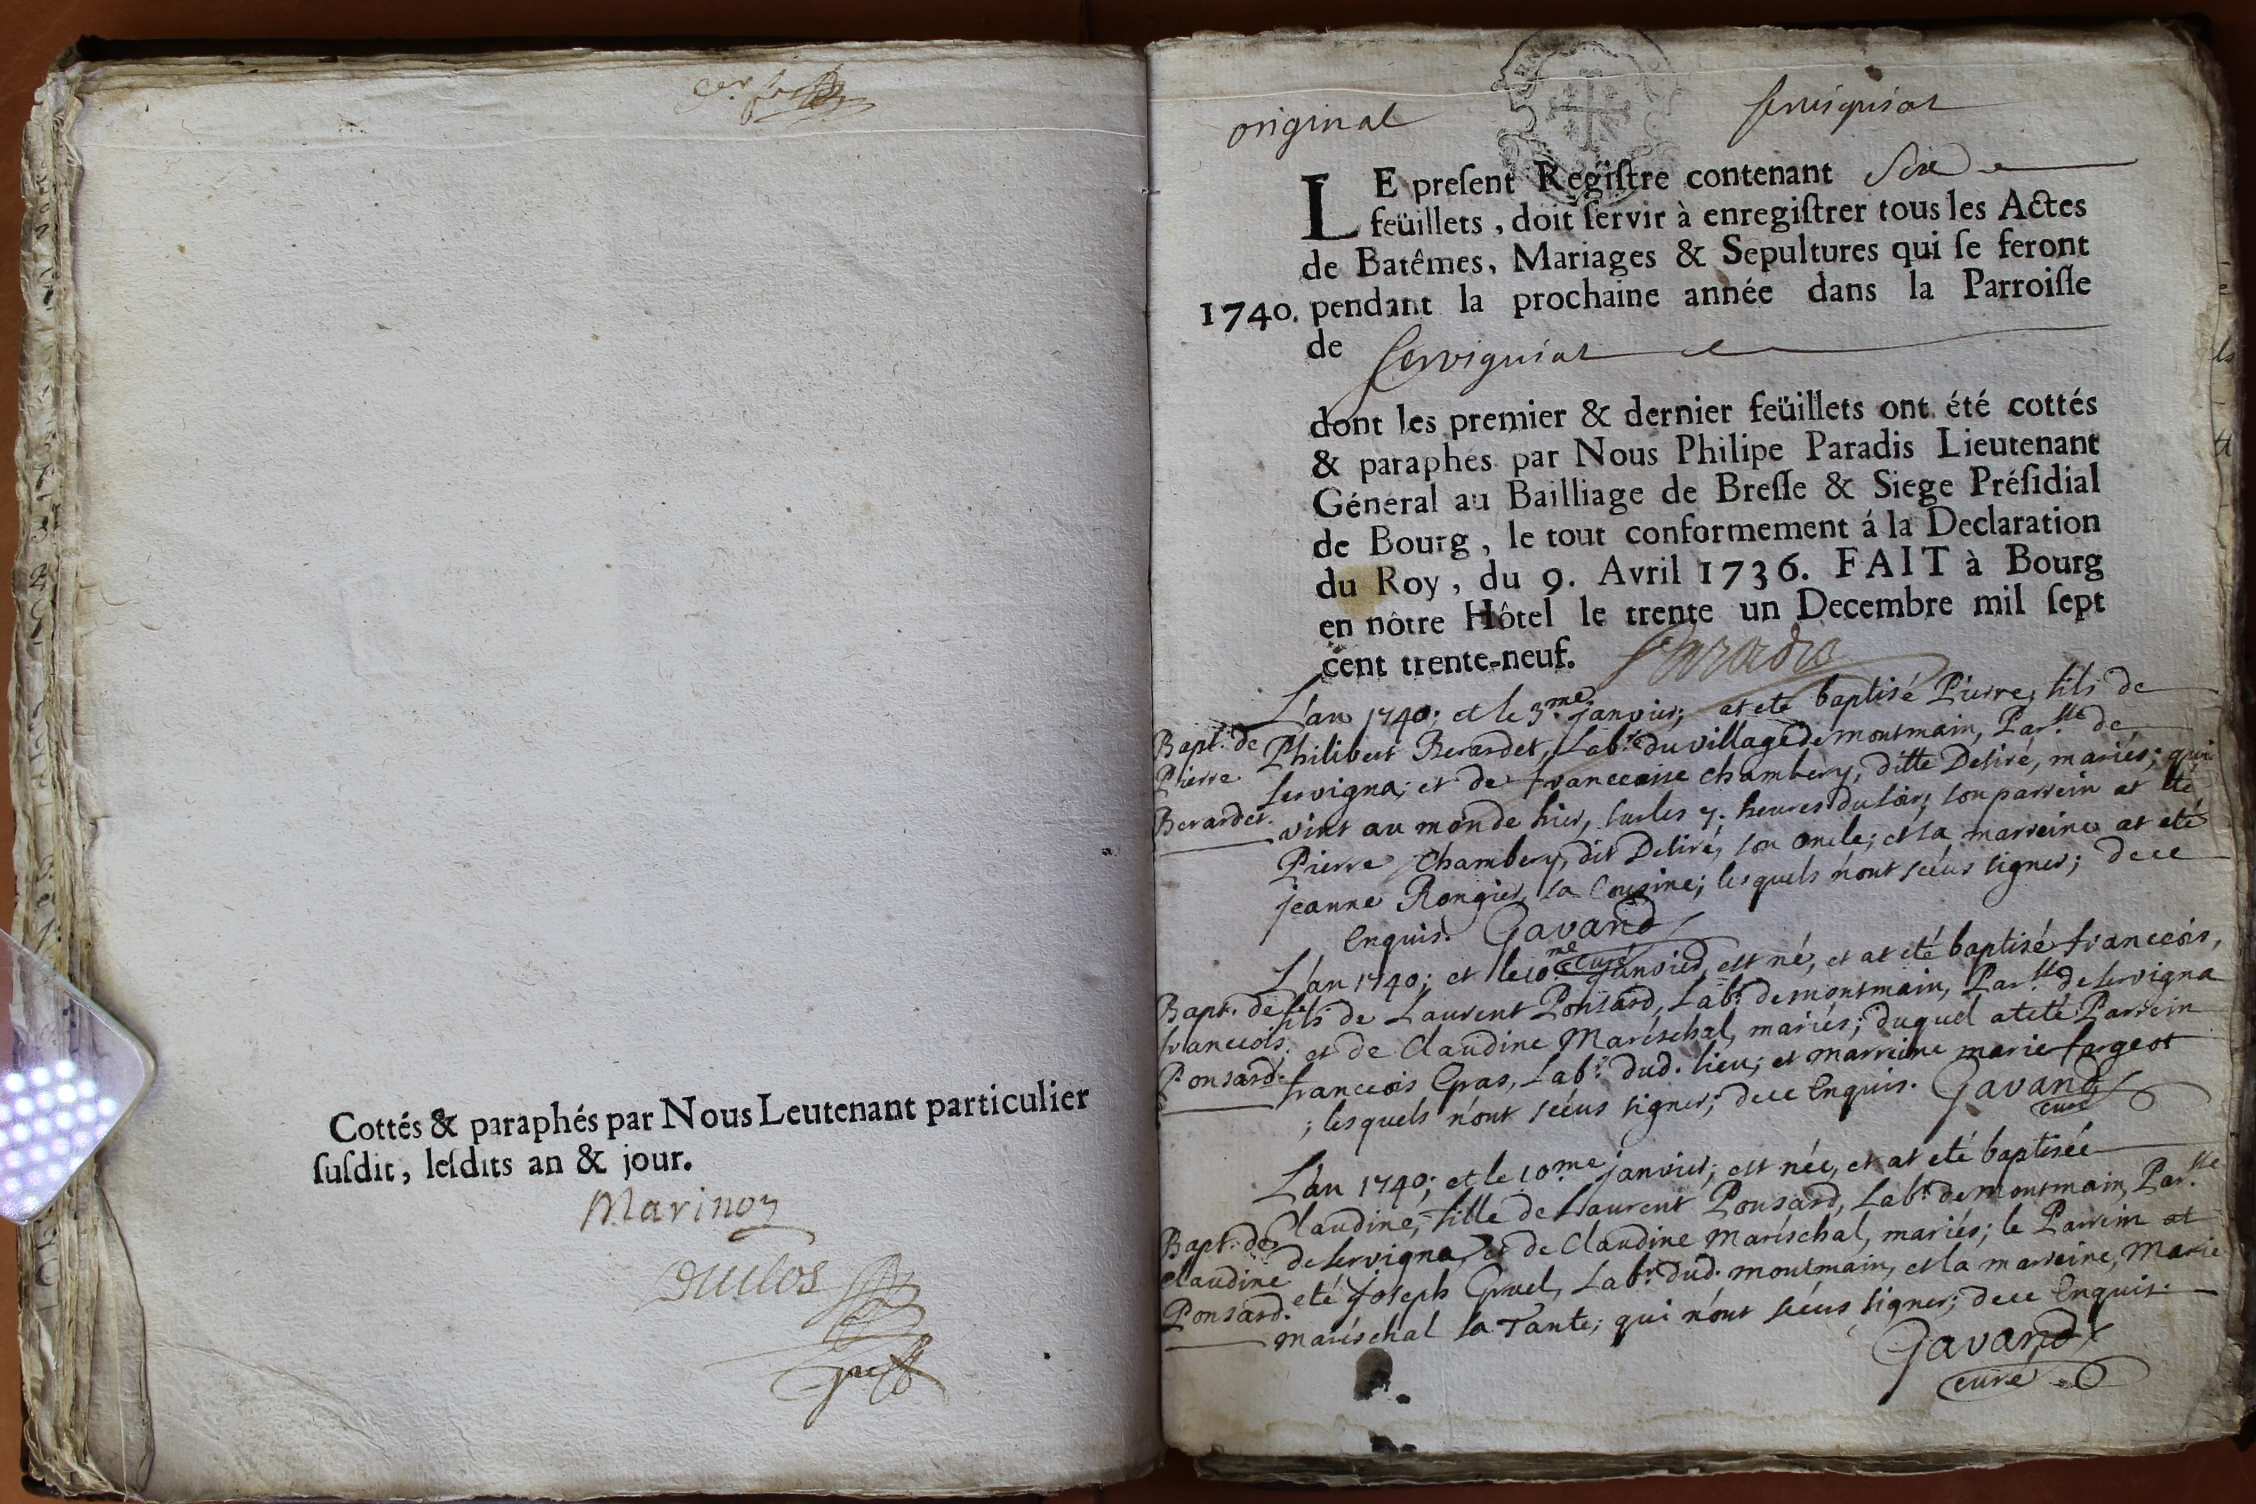 Cottés & paraphés par Nous Leutenant particulier
ſuſdit, leſdits an & jour.
Marinon
Duclos
original
LE preſent Regiſtre contenant Six
feüillets, doit ſervir à enregiſtrer tous les Actes
de Batêmes, Mariages & Sepultures qui ſe feront
1740. pendant la prochaine année dans la Parroiſſe
de Servigniat
dont les premier & dernier feüillets ont été cottés
& paraphés par Nous Philipe Paradis Lieutenant
Général au Bailliage de Breſſe & Siege Préſidial
de Bourg, le tout conformement á la Declaration
du Roy, du 9. Avril 1736. FAIT à Bourg
en nôtre Hôtel le trente un Decembre mil ſept
cent trente-neuf. Paradis
L'an 1740; et le 3.me janvier; at eté baptisé Pierre, fils de
Bapt. de
Pierre
Berardet.
Philibert Berardet, Lab.r du village de montmain, Par.sse de
Servigna; et de francoise Chambery, ditte Deliré, mariés; qui
vint au monde hier, sur les 7. heures du soir; son parrein at eté
Pierre Chambery, dit Deliré, son oncle; et la marreine at eté
jeanne Rongier, sa Cousine; lesquels n'ont sceus signer; de ce
Enquis. Gavand
curé
L'an 1740; et le 10.me janvier, est né, et at eté baptisé francois,
Bapt. de
francois
Ponsard.
fils de Laurent Ponsard, Lab.r de montmain, Par.sse de Servigna
et de Claudine Maréschal, mariés; duquel at eté Parrein
francois Gras, Lab.r dud. lieu; et marreine marie fargeot
; lesquels n'ont sceus signer; de ce Enquis. Gavand
curé
L'an 1740; et le 10.me janvier; est née, et at eté baptisée
Bapt. de
Claudine
Ponsard.
Claudine, fille de Laurent Ponsard, Lab.r de montmain, Par.sse
de Servigna, et de Claudine Maréschal, mariés; le Parrein at
eté joseph Gruel, Lab.r dud. montmain, et la marreine, Marie
maréschal sa Tante; qui n'ont sceus signer; de ce Enquis.
Gavand
curé